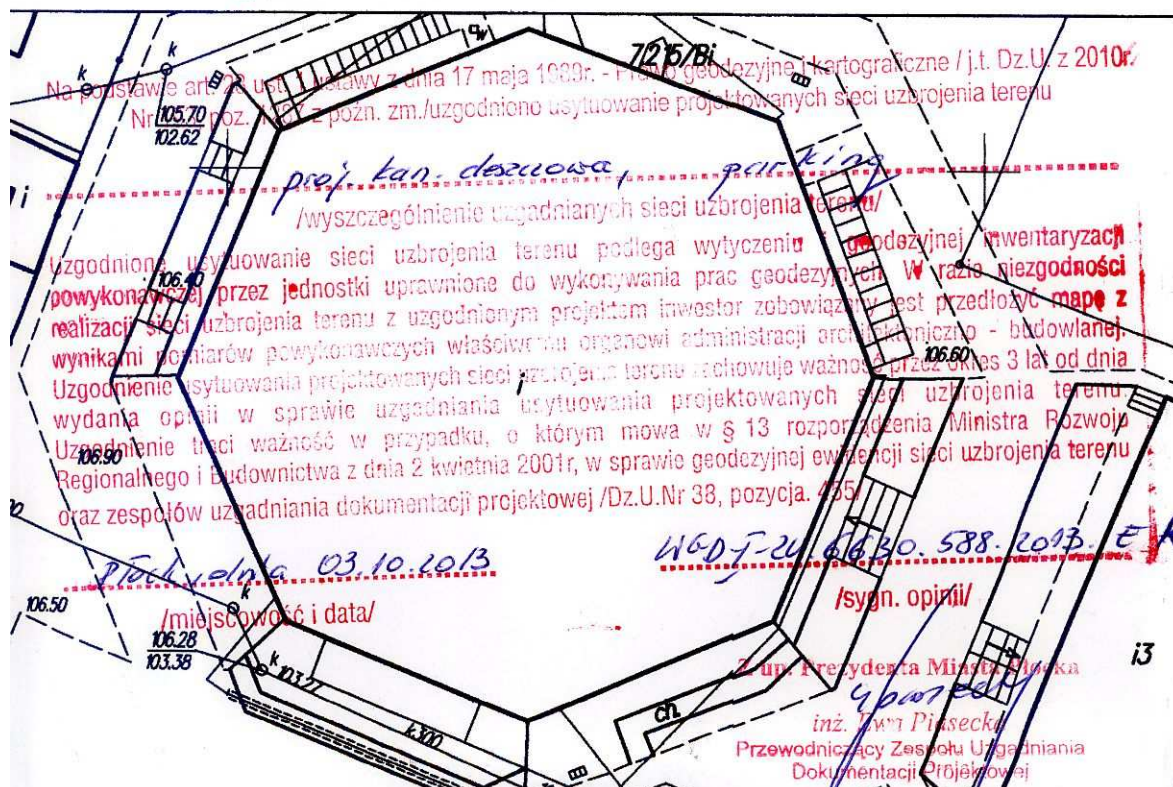 k
7/215/Bi
Na podstawie art. 28 ust. 1 ustawy z dnia 17 maja 1989r. - Prawo geodezyjne i kartograficzne / j.t. Dz.U. z 2010r.
Nr poz. z późn. zm./uzgodniono usytuowanie projektowanych sieci uzbrojenia terenu
105.70
102.62
proj. kan. deszczowa, parking
/wyszczególnienie uzgadnianych sieci uzbrojenia terenu/
Uzgodnione usytuowanie sieci uzbrojenia terenu podlega wytyczeniu i geodezyjnej inwentaryzacji
powykonawczej przez jednostki uprawnione do wykonywania prac geodezyjnych. W razie niezgodności
106.40
realizacji sieci uzbrojenia terenu z uzgodnionym projektem inwestor zobowiązany jest przedłożyć mapę z
wynikami pomiarów powykonawczych właściwemu organowi administracji architektoniczno - budowlanej.
106.60
Uzgodnienie usytuowania projektowanych sieci uzbrojenia terenu zachowuje ważność przez okres 3 lat od dnia
i
wydania opinii w sprawie uzgadniania usytuowania projektowanych sieci uzbrojenia terenu.
Uzgodnienie traci ważność w przypadku, o którym mowa w § 13 rozporządzenia Ministra Rozwoju
106.90
Regionalnego i Budownictwa z dnia 2 kwietnia 2001r, w sprawie geodezyjnej ewidencji sieci uzbrojenia terenu
oraz zespołów uzgadniania dokumentacji projektowej /Dz.U.Nr 38, pozycja. 455/
Płock, dnia 03.10.2013
WGD-I-ZU.6630.588.2013.E
/miejscowość i data/
/sygn. opinii/
106.50
k
106.28
103.38
k 103.27
i3
Z up. Prezydenta Miasta Płocka
ch
k300
inż. Ewa Piasecka
Przewodniczący Zespołu Uzgadniania
Dokumentacji Projektowej